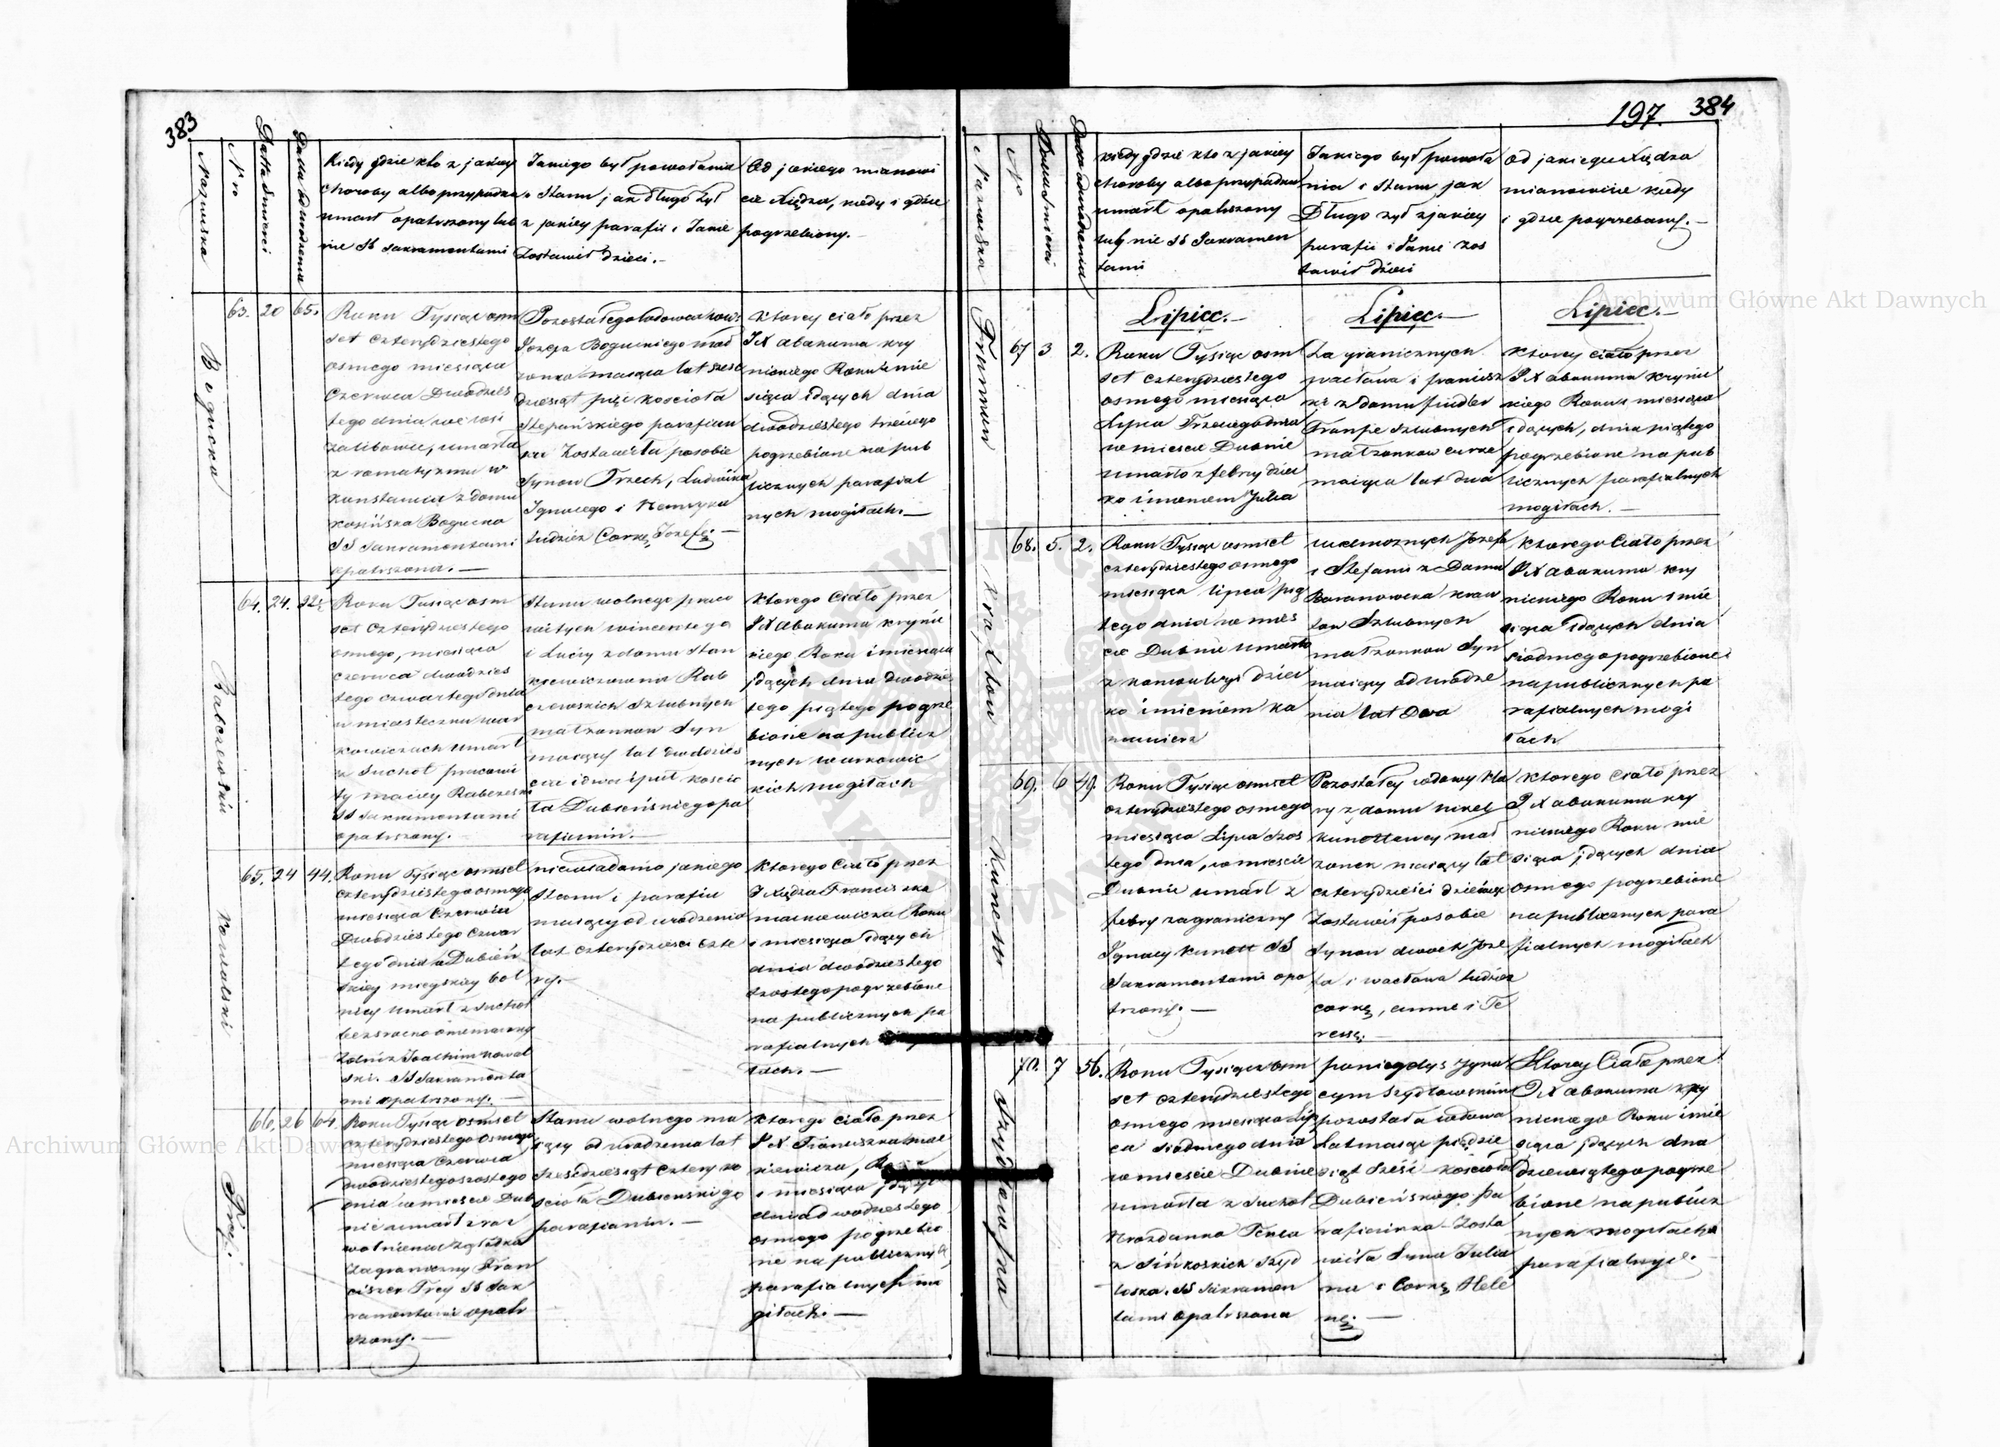 383
Nazwiska
Nro
Datta Śmierci
Datta Urodzenia
Kiedy gdzie kto z jakiey
choroby albo przypadku
umarł opatrzony lub
nie SS Sakramentami
Jakiego był powołania
i Stanu, jak długo żył
z jakiey parafii i Jakie
Zostawił dzieci.-
Od jakiego mianowi
cie Xiędza, kiedy i gdzie
pogrzebiony.-
Bogucka
63. 20 65.
Roku Tysiąc osm
set czterdziestego
osmego miesiąca
Czerwca Dwudzies
tego dnia we wsi
Zalibowie, umarła
z romatyzmu w
Konstancia z domu
Kosińska Bogucka
SS Sakramentami
opatrzona.-
Pozostałego wdowca
Jozefa Boguckiego mał
żonka maiąca lat szesc
dziesiąt pięć kościoła
Stepańskiego parafian
ka Zostawiła po sobie
Synow Trzech, Ludwika
Ignacego i Henryka
tudzież Corkę Jozefę.-
Ktorey ciało przez
JX Abakuma Kry
nickiego Roku i mie
siąca idących dnia
dwudziestego trzeciego
pogrzebione na pub
licznych parafial
nych mogiłach.-
Rabczewski
64. 24. 22½
Roku Tysiąc osm
set czterdziestego
osmego, miesiąca
Czerwca dwudzies
tego czwartego dnia
w miasteczku War
kowiczach umarł
z Suchot pracowi
ty Maciey Rabczeski
SS Sakramentami
opatrzony.-
Stanu wolnego praco
witych Wincentego
i Łucyi z domu Stan
kiewiczowna Rab
czewskich Szlubnych
małżonkow Syn
maiący lat dwadzies
cia i dwa i puł kościo
ła Dubieńskiego pa
rafianin.-
Ktorego Ciało przez
JX Abakuma Krynic
kiego Roku i miesiąca
idących dnia dwudzies
tego piątego pogrze
bione na publicz
nych Warkowic
kich mogiłach
Kowalski
65. 24 44.
Roku Tysiąc osmset
czterdziestego osmego
miesiąca Czerwca
Dwudziestego czwar
tego dnia w Dubień
skiey mieyskiey bol
nicy umarł z Suchot
bezsrocno odniemazony
Żołnierz Joachim Kowal
ski. SS Sakramenta
mi opatrzony.-
niewiadomo jakiego
Stanu i parafii
maiący od urodzenia
lat czterdzieści czte
ry.
Ktorego Ciało przez
JXiędza Franciszka
Mackiewicza Roku
i miesiąca idących
dnia dwudziestego
szostego pogrzebione
na publicznych pa
rafialnych
łach.-
Frey.
66. 26 64.
Roku Tysiąc osmset
czterdziestego osmego
miesiąca Czerwca
dwudziestego szostego
dnia w mieście Dub
nie umarł z roz
wolnienia żołądka
Zagraniczny Fran
ciszek Frey SS Sak
ramentami opatr
zony.-
Stanu wolnego ma
iący od urodzenia lat
sześćdziesiąt cztery ko
ścioła Dubienskiego
parafianin.-
Ktorego ciało przez
JX Franciszka Mac
kiewicza, Roku
i miesiąca idących
dnia dwudziestego
osmego pogrzebio
ne na publicznych
parafialnych mo
giłach.-
197. 384
Nazwiska
Nro
Datta Śmierci
Datta Urodzenia
Kiedy gdzie kto z jakiey
choroby albo przypadku
umarł opatrzony
lub nie SS Sakramen
tami
Jakiego był powoła
nia i Stanu jak
Długo żył z jakiey
parafii i Jakie zos
tawił dzieci
Od jakiego Xiędza
mianowicie kiedy
i gdzie pogrzebany.-
Lipiec.- Lipiec.- Lipiec.-
67 3 2.
Roku Tysiąc osm
set czterdziestego
osmego miesiąca
Lipca Trzeciego dnia
w mieście Dubnie
umarło z febry dziec
ko imieniem Julia
Zagranicznych
Wacława i Francisz
ki z domu Findler
Szlubnych
małżonkow curka
maiąca lat dwa
Ktorey ciało przez
JX Abakuma Krynic
kiego Roku i miesiąca
idących, dnia piątego
pogrzebione na pub
licznych parafialnych
mogiłach.-
Krawtow
68. 5. 2.
Roku Tysiąc osmset
czterdziestego osmego
miesiąca lipca pią
tego dnia w mieś
cie Dubnie umarło
z konwulsyi dziec
ko imieniem Ka
zimierz
Wielmożnych Jozefa
i Stefanii z Domu
Baranowska Kraw
tow Szlubnych
małżonkow Syn
maiący od urodze
nia lat Dwa
Ktorego Ciało przez
JX Abakuma Kry
nickiego Roku i mie
siąca idących dnia
siodmego pogrzebione
na publicznych pa
rafialnych mogi
łach
69. 6 49.
Roku Tysiąc osmset
czterdziestego osmego
miesiąca Lipca szos
tego dnia, w mieście
Dubnie umarł z
febry zagraniczny
Ignacy Kunott SS
Sakramentami opa
trzony.-
Pozostałey wdowy Ma
ry z domu
Kunottowey mał
żonek maiący lat
czterdzieści dziewięć
Zostawił po sobie
Synow dwoch Joze
fa i Wacława tudzież
corkę, Annę i Te
ressę.
Ktorego ciało przez
JX Abakuma Kry
nickiego Roku mie
siąca idących dnia
osmego pogrzebione
na publicznych para
fialnych mogiłach
Szydłowska
70. 7 56.
Roku Tysiąc osm
set czterdziestego
osmego miesiąca Lip
ca siodmego dnia
w mieście Dubnie
umarła z Suchot
Tekla
z Sinkoskich Szyd
łoska. SS Sakramen
tami opatrzona
po niegdyś Igna
cym Szydłowskim
pozostała wdowa
Lat maiąc piędzie
siąt sześć kościoła
Dubieńskiego Pa
rafianka - Zosta
wiła Syna Julia
na i Corkę Hele
nę.-
Ktorey Ciało przez
JX Abakuma Kry
nickiego Roku i mie
siąca idących dnia
dziewiątego pogrze
bione na publicz
nych mogiłach
parafialnych.-
Archiwum Główne Akt Dawnych
Archiwum Główne Akt Dawnych